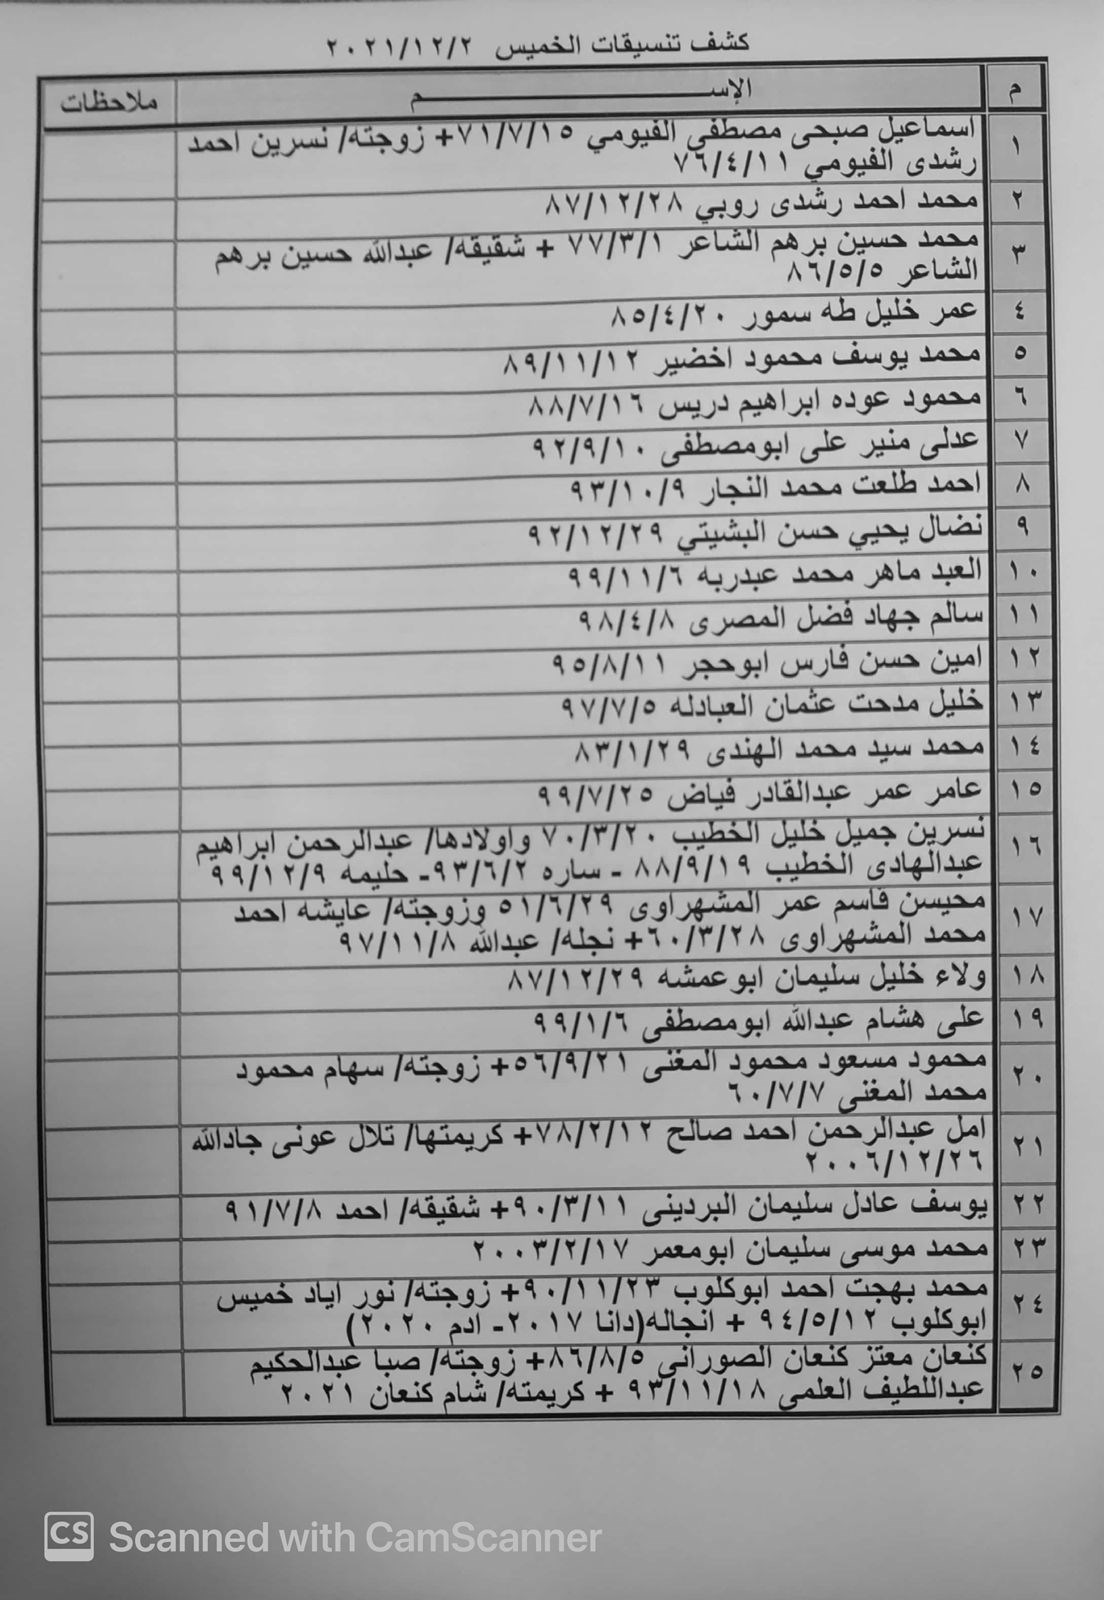 كشف تنسيقات الخميس ٢٠٢١/١٢/٢
م الإســـــــــم ملاحظات
١ اسماعيل صبحى مصطفى الفيومي ٧١/٧/١٥+ زوجته/ نسرين احمد
رشدى الفيومي ٧٦/٤/١١
٢ محمد احمد رشدى روبي ٨٧/١٢/٢٨
٣ محمد حسين برهم الشاعر ٧٧/٣/١ + شقيقه/ عبدالله حسين برهم
الشاعر ٨٦/٥/٥
٤ عمر خليل طه سمور ٨٥/٤/٢٠
٥ محمد يوسف محمود اخضير ٨٩/١١/١٢
٦ محمود عوده ابراهيم دريس ٨٨/٧/١٦
٧ عدلى منير على ابومصطفى ٩٢/٩/١٠
٨ احمد طلعت محمد النجار ٩٣/١٠/٩
٩ نضال يحيي حسن البشيتي ٩٢/١٢/٢٩
١٠ العبد ماهر محمد عبدربه ٩٩/١١/٦
١١ سالم جهاد فضل المصرى ٩٨/٤/٨
١٢ امين حسن فارس ابوحجر ٩٥/٨/١١
١٣ خليل مدحت عثمان العبادله ٩٧/٧/٥
١٤ محمد سيد محمد الهندى ٨٣/١/٢٩
١٥ عامر عمر عبدالقادر فياض ٩٩/٧/٢٥
١٦ نسرين جميل خليل الخطيب ٧٠/٣/٢٠ واولادها/ عبدالرحمن ابراهيم
عبدالهادى الخطيب ٨٨/٩/١٩ - ساره ٩٣/٦/٢- حليمه ٩٩/١٢/٩
١٧ محيسن قاسم عمر المشهراوى ٥١/٦/٢٩ وزوجته/ عايشه احمد
محمد المشهراوى ٦٠/٣/٢٨+ نجله/ عبدالله ٩٧/١١/٨
١٨ ولاء خليل سليمان ابوعمشه ٨٧/١٢/٢٩
١٩ على هشام عبدالله ابومصطفى ٩٩/١/٦
٢٠ محمود مسعود محمود المغنى ٥٦/٩/٢١+ زوجته/ سهام محمود
محمد المغنى ٦٠/٧/٧
٢١ امل عبدالرحمن احمد صالح ٧٨/٢/١٢+ كريمتها/ تلال عونى جادالله
٢٠٠٦/١٢/٢٦
٢٢ يوسف عادل سليمان البردينى ٩٠/٣/١١+ شقيقه/ احمد ٩١/٧/٨
٢٣ محمد موسى سليمان ابومعمر ٢٠٠٣/٢/١٧
٢٤ محمد بهجت احمد ابوكلوب ٩٠/١١/٢٣+ زوجته/ نور اياد خميس
ابوكلوب ٩٤/٥/١٢ + انجاله(دانا ٢٠١٧- ادم ٢٠٢٠)
٢٥ كنعان معتز كنعان الصورانى ٨٦/٨/٥+ زوجته/ صبا عبدالحكيم
عبداللطيف العلمى ٩٣/١١/١٨ + كريمته/ شام كنعان ٢٠٢١
CS Scanned with CamScanner